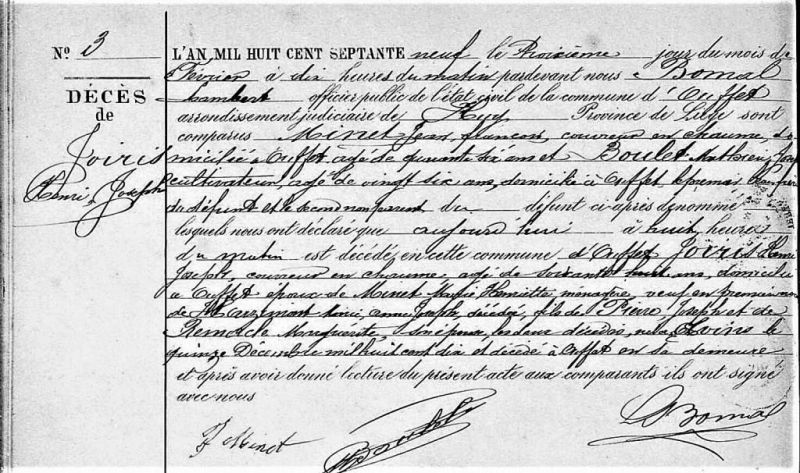 N° 3
DÉCÈS
de
Joiris
Henri, Joseph
L'AN MIL HUIT CENT SEPTANTE neuf le Troisième jour du mois de
Février à dix heures du matin pardevant nous Bomal
Lambert officier public de l'état civil de la commune d'Ouffet
arrondissement judiciaire de Huy Province de Liége sont
comparus Minet Jean françois, couvreur en chaume do
micilié à Ouffet agé de quarante six ans et Boulet Mathieu
cultivateur, agé de vingt six ans, domicilié à Ouffet, le premier
du défunt et le second non parent du défunt ci-après dénommé
lesquels nous ont déclaré que aujourd'hui à huit heures
du matin est décédé en cette commune d'Ouffet Joiris Henri
Joseph, couvreur en chaume, agé de soixante huit ans, domicilié
à Ouffet époux de Minet Marie Henriette ménagère, veuf en premières
de anne Joseph, décédée, fils de Pierre Joseph et de
Remacle Marguérite, son épouse, les deux décédés, né à le
quinze Décembre mil huit cent dix et décédé à Ouffet en sa demeure
et après avoir donné lecture du présent acte aux comparants ils ont signé
avec nous
J Minet
Boulet
L Bomal